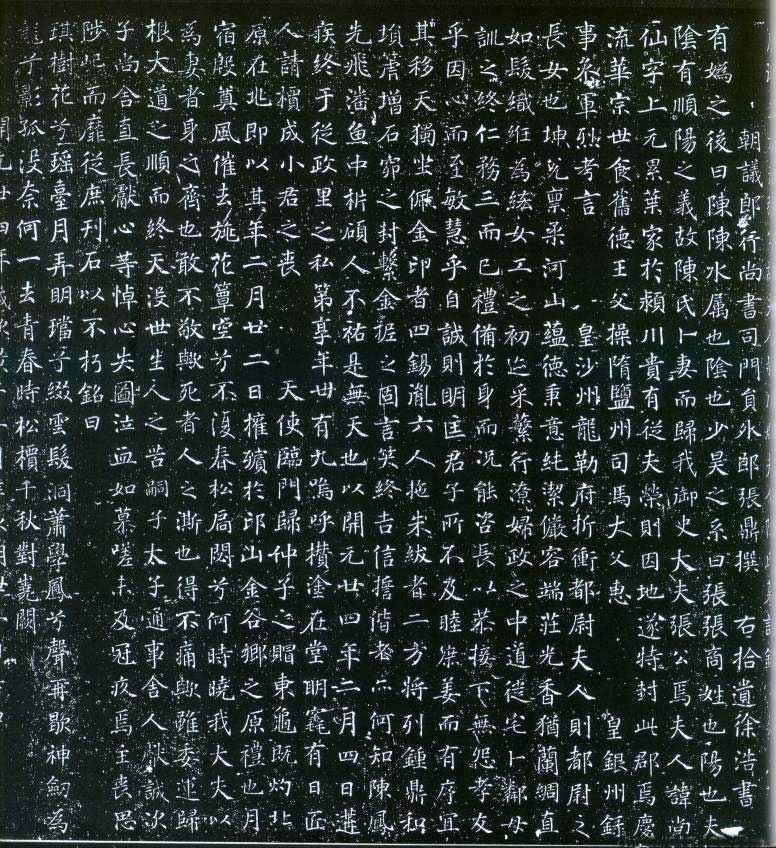 朝議郎行尚書司門員外郎張鼎撰 右拾遺徐浩書
有媯之後曰陳陳水屬也陰也少昊之系曰張張商姓也陽也夫
陰有順陽之義故陳氏卜妻而歸我御史大夫張公焉夫人諱尚
仙字上元累葉家於潁川貴有從夫榮則因地遂特封此郡焉慶
流華宗世食舊德王父操隋鹽州司馬大父惠 皇銀州錄
事參軍烈考言 皇沙州龍勒府折衝都尉夫人則都尉之
長女也坤兌稟柔河山蘊德秉意純潔儼容端莊光香猶蘭綢直
如髮織紝為絃女工之初迄采蘩行潦婦政之中道從宅卜鄰母
訓之終仁務三而已禮備於身而況能咨長以恭接下無怨孝友
乎因心而至敏慧乎自誠則明匡君子所不及睦庶姜而有序宜
其移天獨坐佩金印者四錫胤六人拖朱紱者二方將列鍾鼎和
塤篪增石窌之封繫金柅之固言笑終吉信擔偕老而何知陳鳳
先飛潘魚中析碩人不祐是無天也以開元廿四年二月四日遘
疾終于從政里之私第享年卌有九嗚呼欑塗在堂明竁有日匠
人請櫝成小君之喪 天使臨門歸仲子之賵東龜既灼北
原在兆即以其年二月廿二日權殯於邙山金谷鄉之原禮也月
宿殷奠風催去旐花簟空兮不復春松扃閟兮何時曉我大夫以
為妻者身之齊也敢不敬歟死者人之澌也得不痛歟雖委運歸
根大道之順而終天沒世生人之苦嗣子太子通事舍人獻誠次
子尚舍直長獻心等悼心失圖泣血如慕嗟未及冠疚焉主喪思
陟屺而靡從庶刊石以不朽銘曰
琪樹花兮瑤臺月弄明璫兮綴雲髮洞蕭學鳳兮聲再歇神劒為
龍兮影孤沒奈何一去青春時松檟千秋對嵬闕